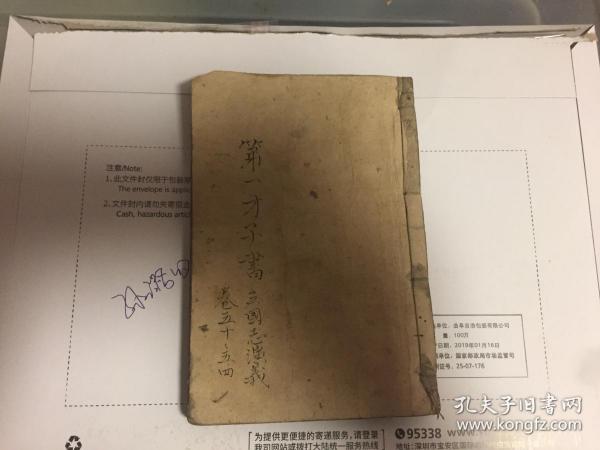 第一才子書
三國志演義
卷五十三四
注意/Note:
1、此文件封仅限于包装
The envelope is applic
2、文件封内请勿夹寄现金
Cash, hazardous articl
单位:曲阜吉浩包装有限公司
量:100万
日期:2019年01月16日
单位:国家邮政局市场监管司
证号:25-07-176
为提供更便捷的寄递服务,请登录
我司网站或拨打大陆统一服务热线
95338
地址:深圳市宝安区国际
孔夫子旧书网
www.kongfz.com